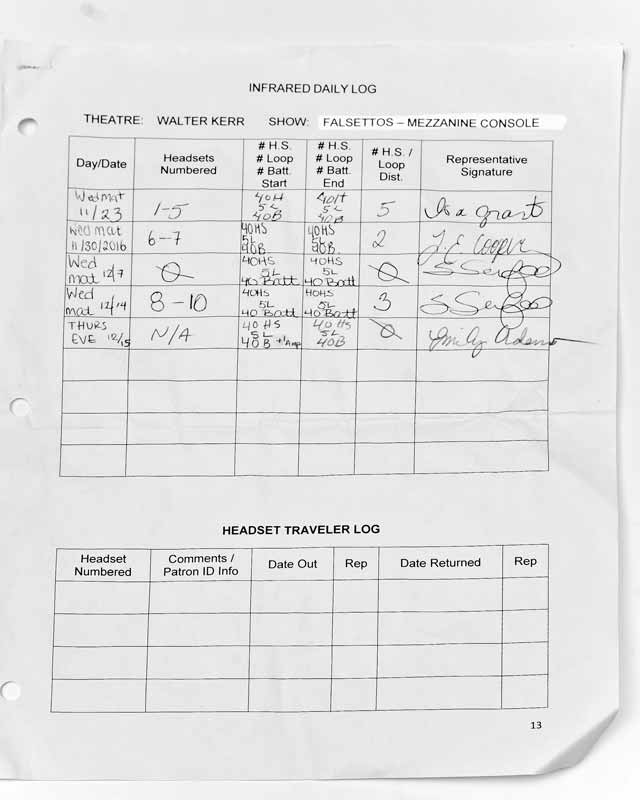 INFRARED DAILY LOG
THEATRE: WALTER KERR SHOW: FALSETTOS – MEZZANINE CONSOLE
Day/Date
Headsets
Numbered
# H.S.
# Loop
# Batt.
Start
# H.S.
# Loop
# Batt.
End
# H.S. /
Loop
Dist.
Representative
Signature
Wed mat
11/23
1-5
40H
5L
40B
40H
5L
40B
5
Wed mat
11/30/2016
6-7
40HS
5L
40B.
40HS
5L
40B.
2
J. E. Cooper
Wed
mat 12/7
0
40HS
5L
40 Batt
40HS
5L
40 Batt
0
Wed
mat 12/14
8-10
40HS
5L
40 Batt
40HS
5L
40 Batt
3
THURS
EVE 12/15
N/A
40 HS
5L
40B
40 HS
5L
40B
0
Emily Adams
HEADSET TRAVELER LOG
Headset
Numbered
Comments /
Patron ID Info
Date Out
Rep
Date Returned
Rep
13